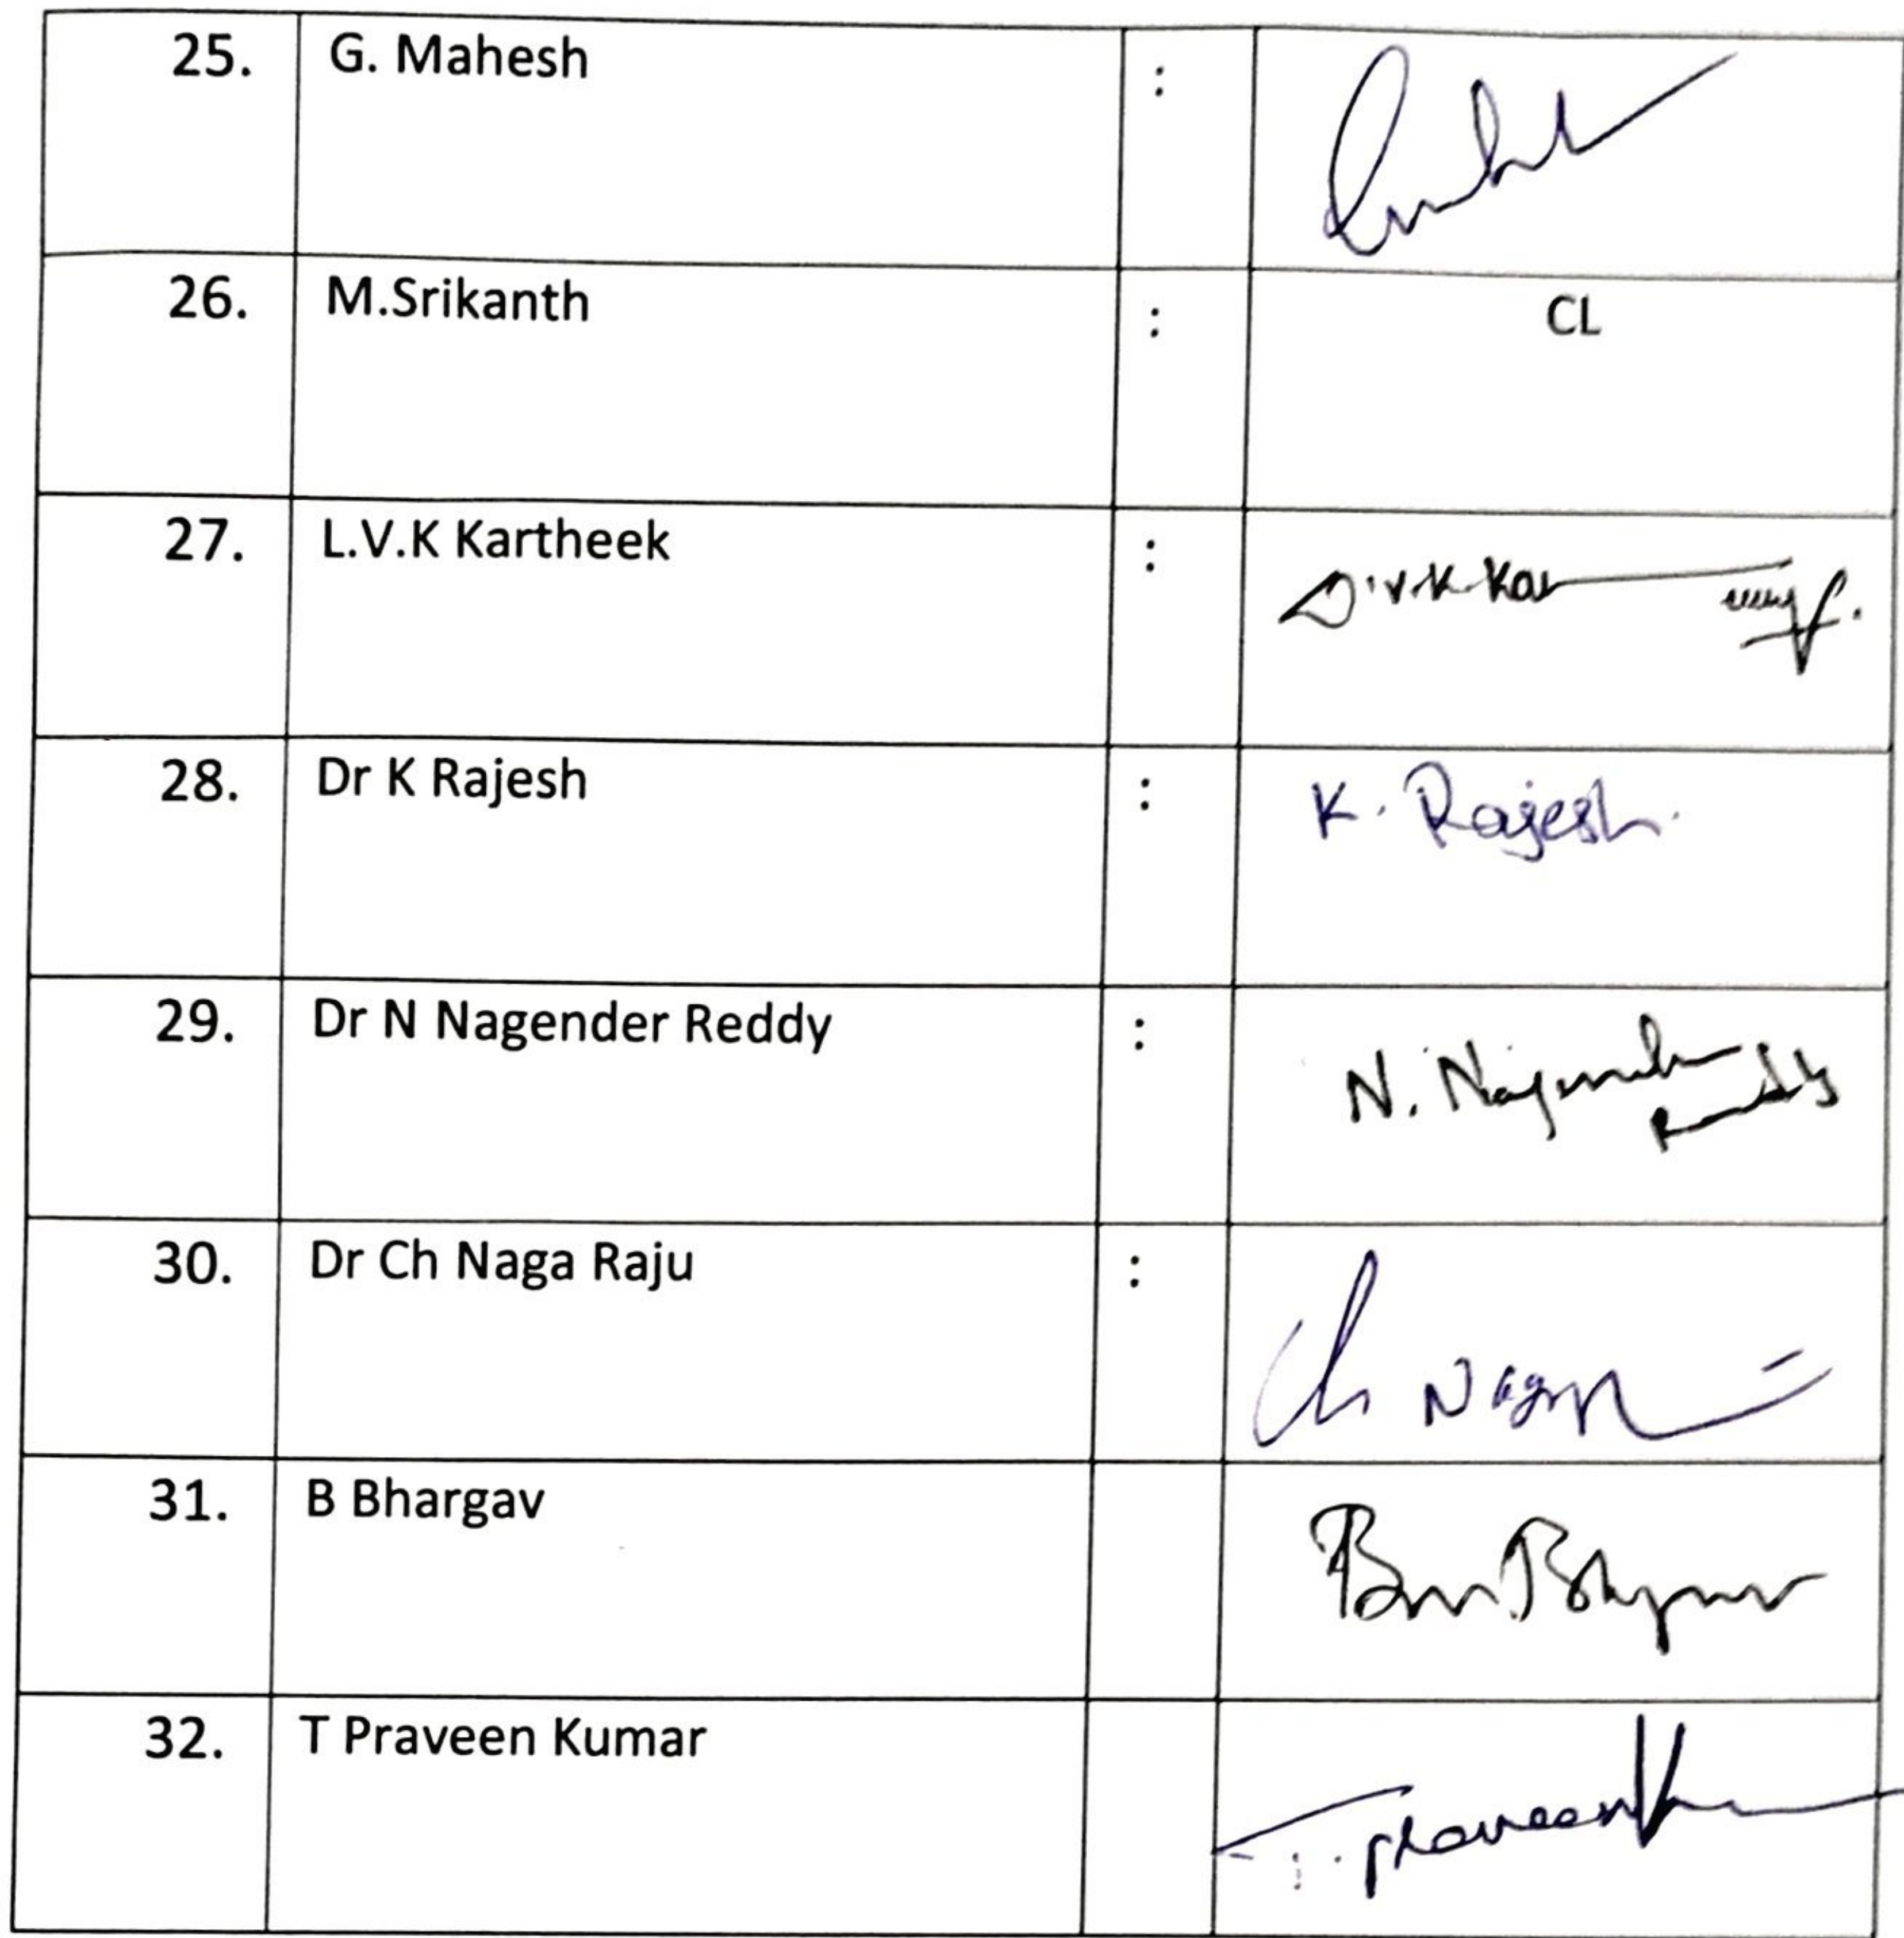 25. G. Mahesh :
26. M.Srikanth : CL
27. L.V.K Kartheek :
28. Dr K Rajesh : K. Rajesh
29. Dr N Nagender Reddy : N. Nagender
Reddy
30. Dr Ch Naga Raju : Ch Naga
31. B Bhargav
32. T Praveen Kumar T. Praveen